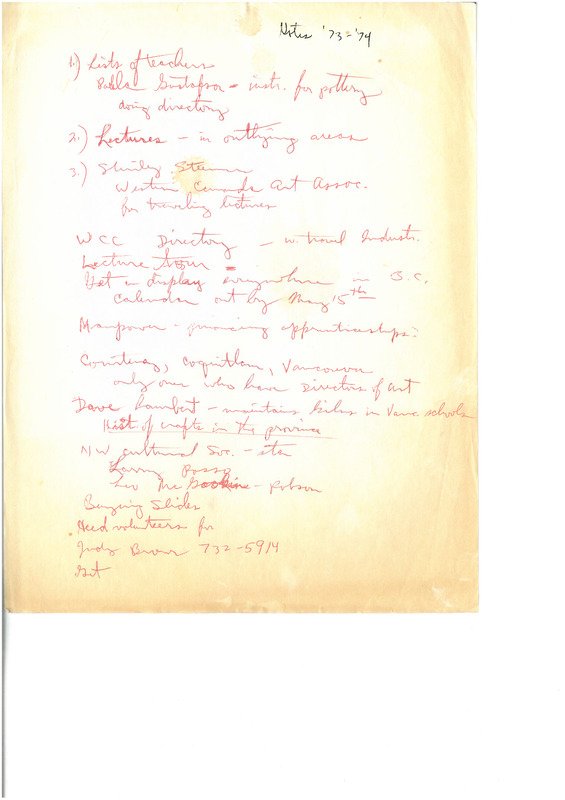 Notes '73-'74
1.) Lists of teachers
Gustafson - instr. for pottery
doing directory
2.) Lectures - in outlying areas
3.) Shirley
Western Canada Art Assoc.
for traveling lectures
WCC Directory - w. travel Industr.
Lecture tour
Get in display everywhere in B.C.
Calendar out by May 15th
Manpower - apprenticeships?
Courtenay, Coquitlam, Vancouver
only ones who have Directors of Art
Dave Lambert - maintains kilns in Vanc. schools
Hist of crafts in the province
NW cultural Soc. - etc
Larry
- Robson
Buying Slides
Need volunteers for
Judy 732-5914
Get